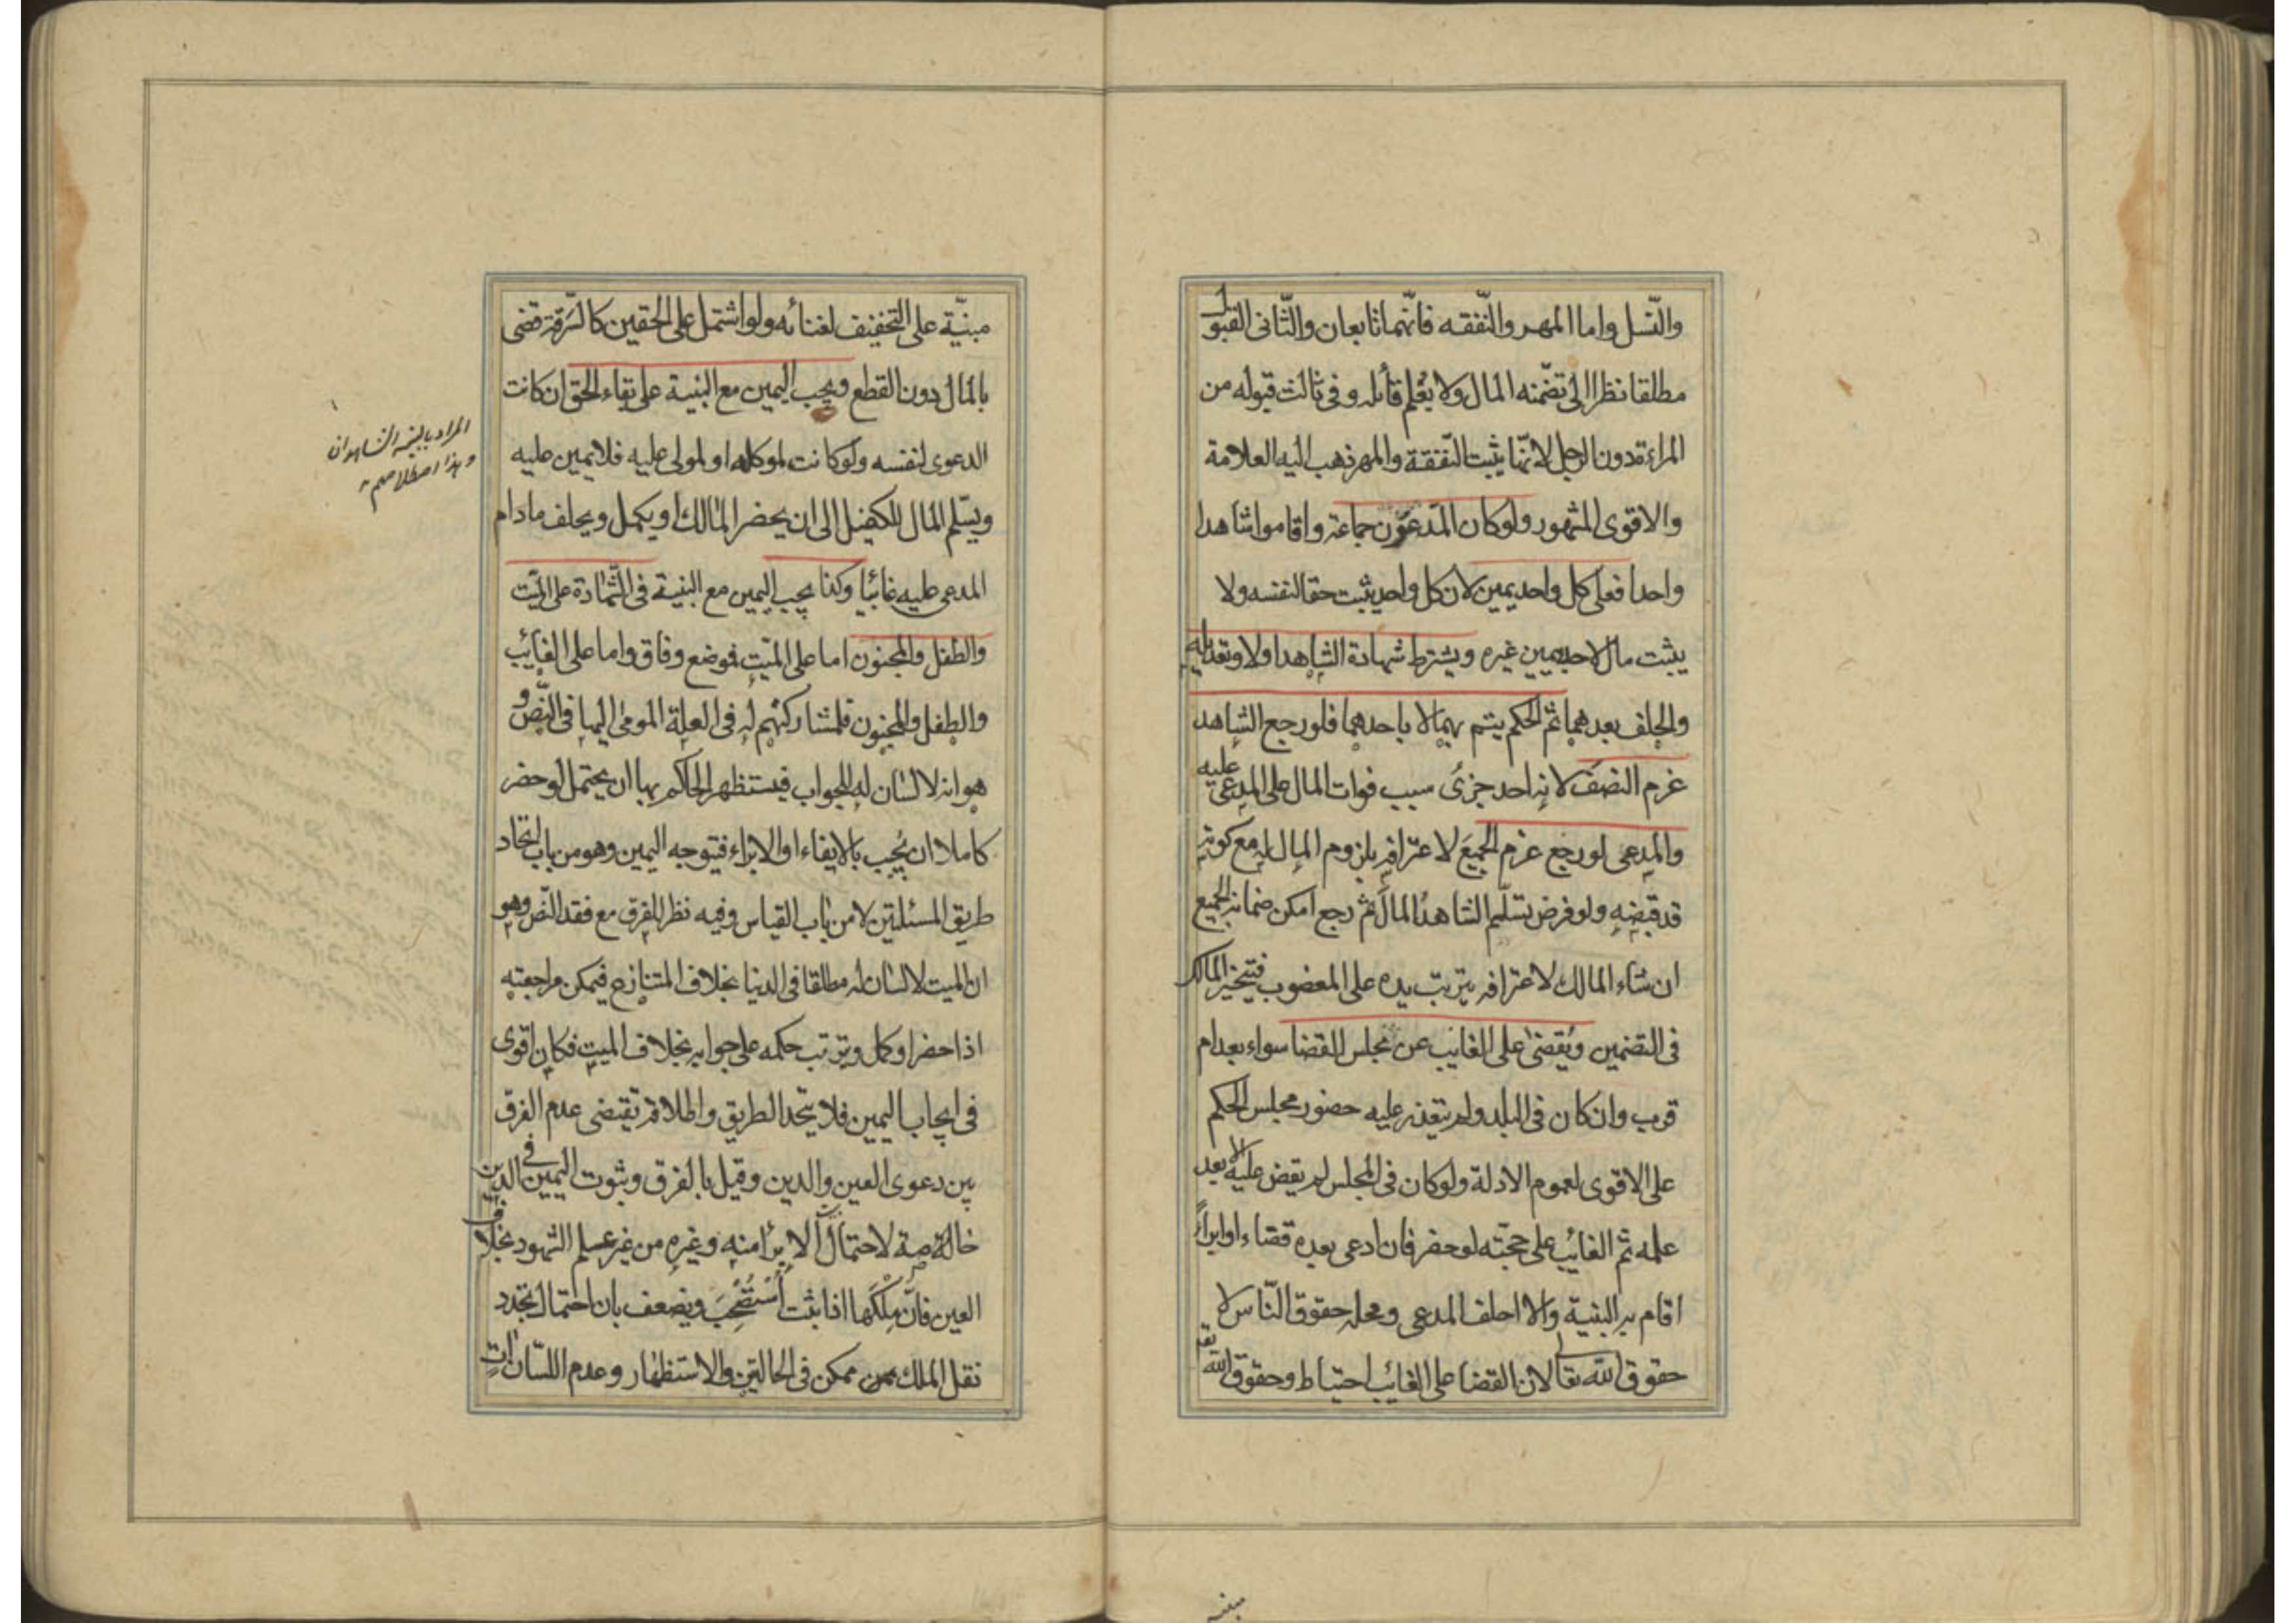 والنّسل واما المهر والنّفقه فانّهما تابعان والثّانى القبول
مطلقا نظرا الى تضمّنه المال ولا يعلم قائله وفى ثالث قبوله من
المراءة دون الرجل لانّها يثبت النّفقة والمهر ذهب اليه العلامة
والاقوى المشهور ولو كان المدعون جماعة واقاموا شاهدا
واحدا فعلى كل واحد يمين لان كل واحد يثبت حقا لنفسه ولا
يثبت مال لاحد بيمين غيره ويشترط شهادة الشاهد اولا وتعديله
والحلف بعدهما ثم الحكم يتم بهما لا باحدهما فلو رجع الشاهد
غرم النصف لانه احد جزئى سبب فوات المال على المدعى عليه
والمدعى لو رجع غرم الجميع لاعترافه بلزوم المال له مع كونه
قد قبضه ولو فرض تسلّم الشاهد المال ثم رجع امكن ضمانه الجميع
ان شاء المالك لاعترافه بترتب يده على المغصوب فيتخير المالك
فى التضمين ويقضى على الغائب عن مجلس القضا سواء بعد ام
قرب وان كان فى البلد ولم يتعذر عليه حضور مجلس الحكم
على الاقوى لعموم الادلة ولو كان فى المجلس لم يقض عليه الا بعد
علمه ثم الغائب على حجته لو حضر فان ادعى بعده قضاء او ابراءً
اقام به البنية والا احلف المدعى ومحله حقوق النّاس لا
حقوق الله تعا لان القضا على الغائب احتياط وحقوق الله تع
مبنيّة على التخفيف لغنائه ولو اشتمل على الحقين كالسّرقة قضى
بالمال دون القطع ويجب اليمين مع البنية على بقاء الحق ان كانت
الدعوى لنفسه ولو كانت لموكله او لمولى عليه فلا يمين عليه
ويسّلم المال للكفيل الى ان يحضر المالك او يكمل ويحلف ما دام
المدعى عليه غائبا وكذا يجب اليمين مع البنية فى الشّهادة على الميّت
والطفل والمجنون اما على الميّت فوضع وفاق واما على الغائب
والطفل والمجنون فلمشاركتهم له فى العلة المومى اليها فى النّص و
هو انه لا لسان له للجواب فيستظهر الحاكم بها ان يحتمل لو حضر
كاملا ان يجيب بالايفاء او الابراء فيتوجه اليمين وهو من باب اتحاد
طريق المسئلتين لا من باب القياس وفيه نظر للفرق مع فقد النّص وهو
ان الميت لا لسان له مطلقا فى الدنيا بخلاف المتنازع فيمكن مراجعته
اذا حضر او كمل وترتب حكمه على جوابه بخلاف الميت فكان اقوى
فى ايجاب اليمين فلا يتحد الطريق واطلاقه تقتضى عدم الفرق
بين دعوى العين والدين وقيل بالفرق وثبوت اليمين فى الدين
خاصة لاحتمال الابرا منه وغيره من غير علم الشهود بخلاف
العين فانّ مِلكَها اذا ثبت اُسْتُصْحِبَ ويضعف بان احتمال تجدد
نقل الملك ممكن فى الحالتين والاستظهار وعدم اللسّان اتٍ
المراد بالبينة الشاهدان
وهذا اصطلاحهم
مبنيه